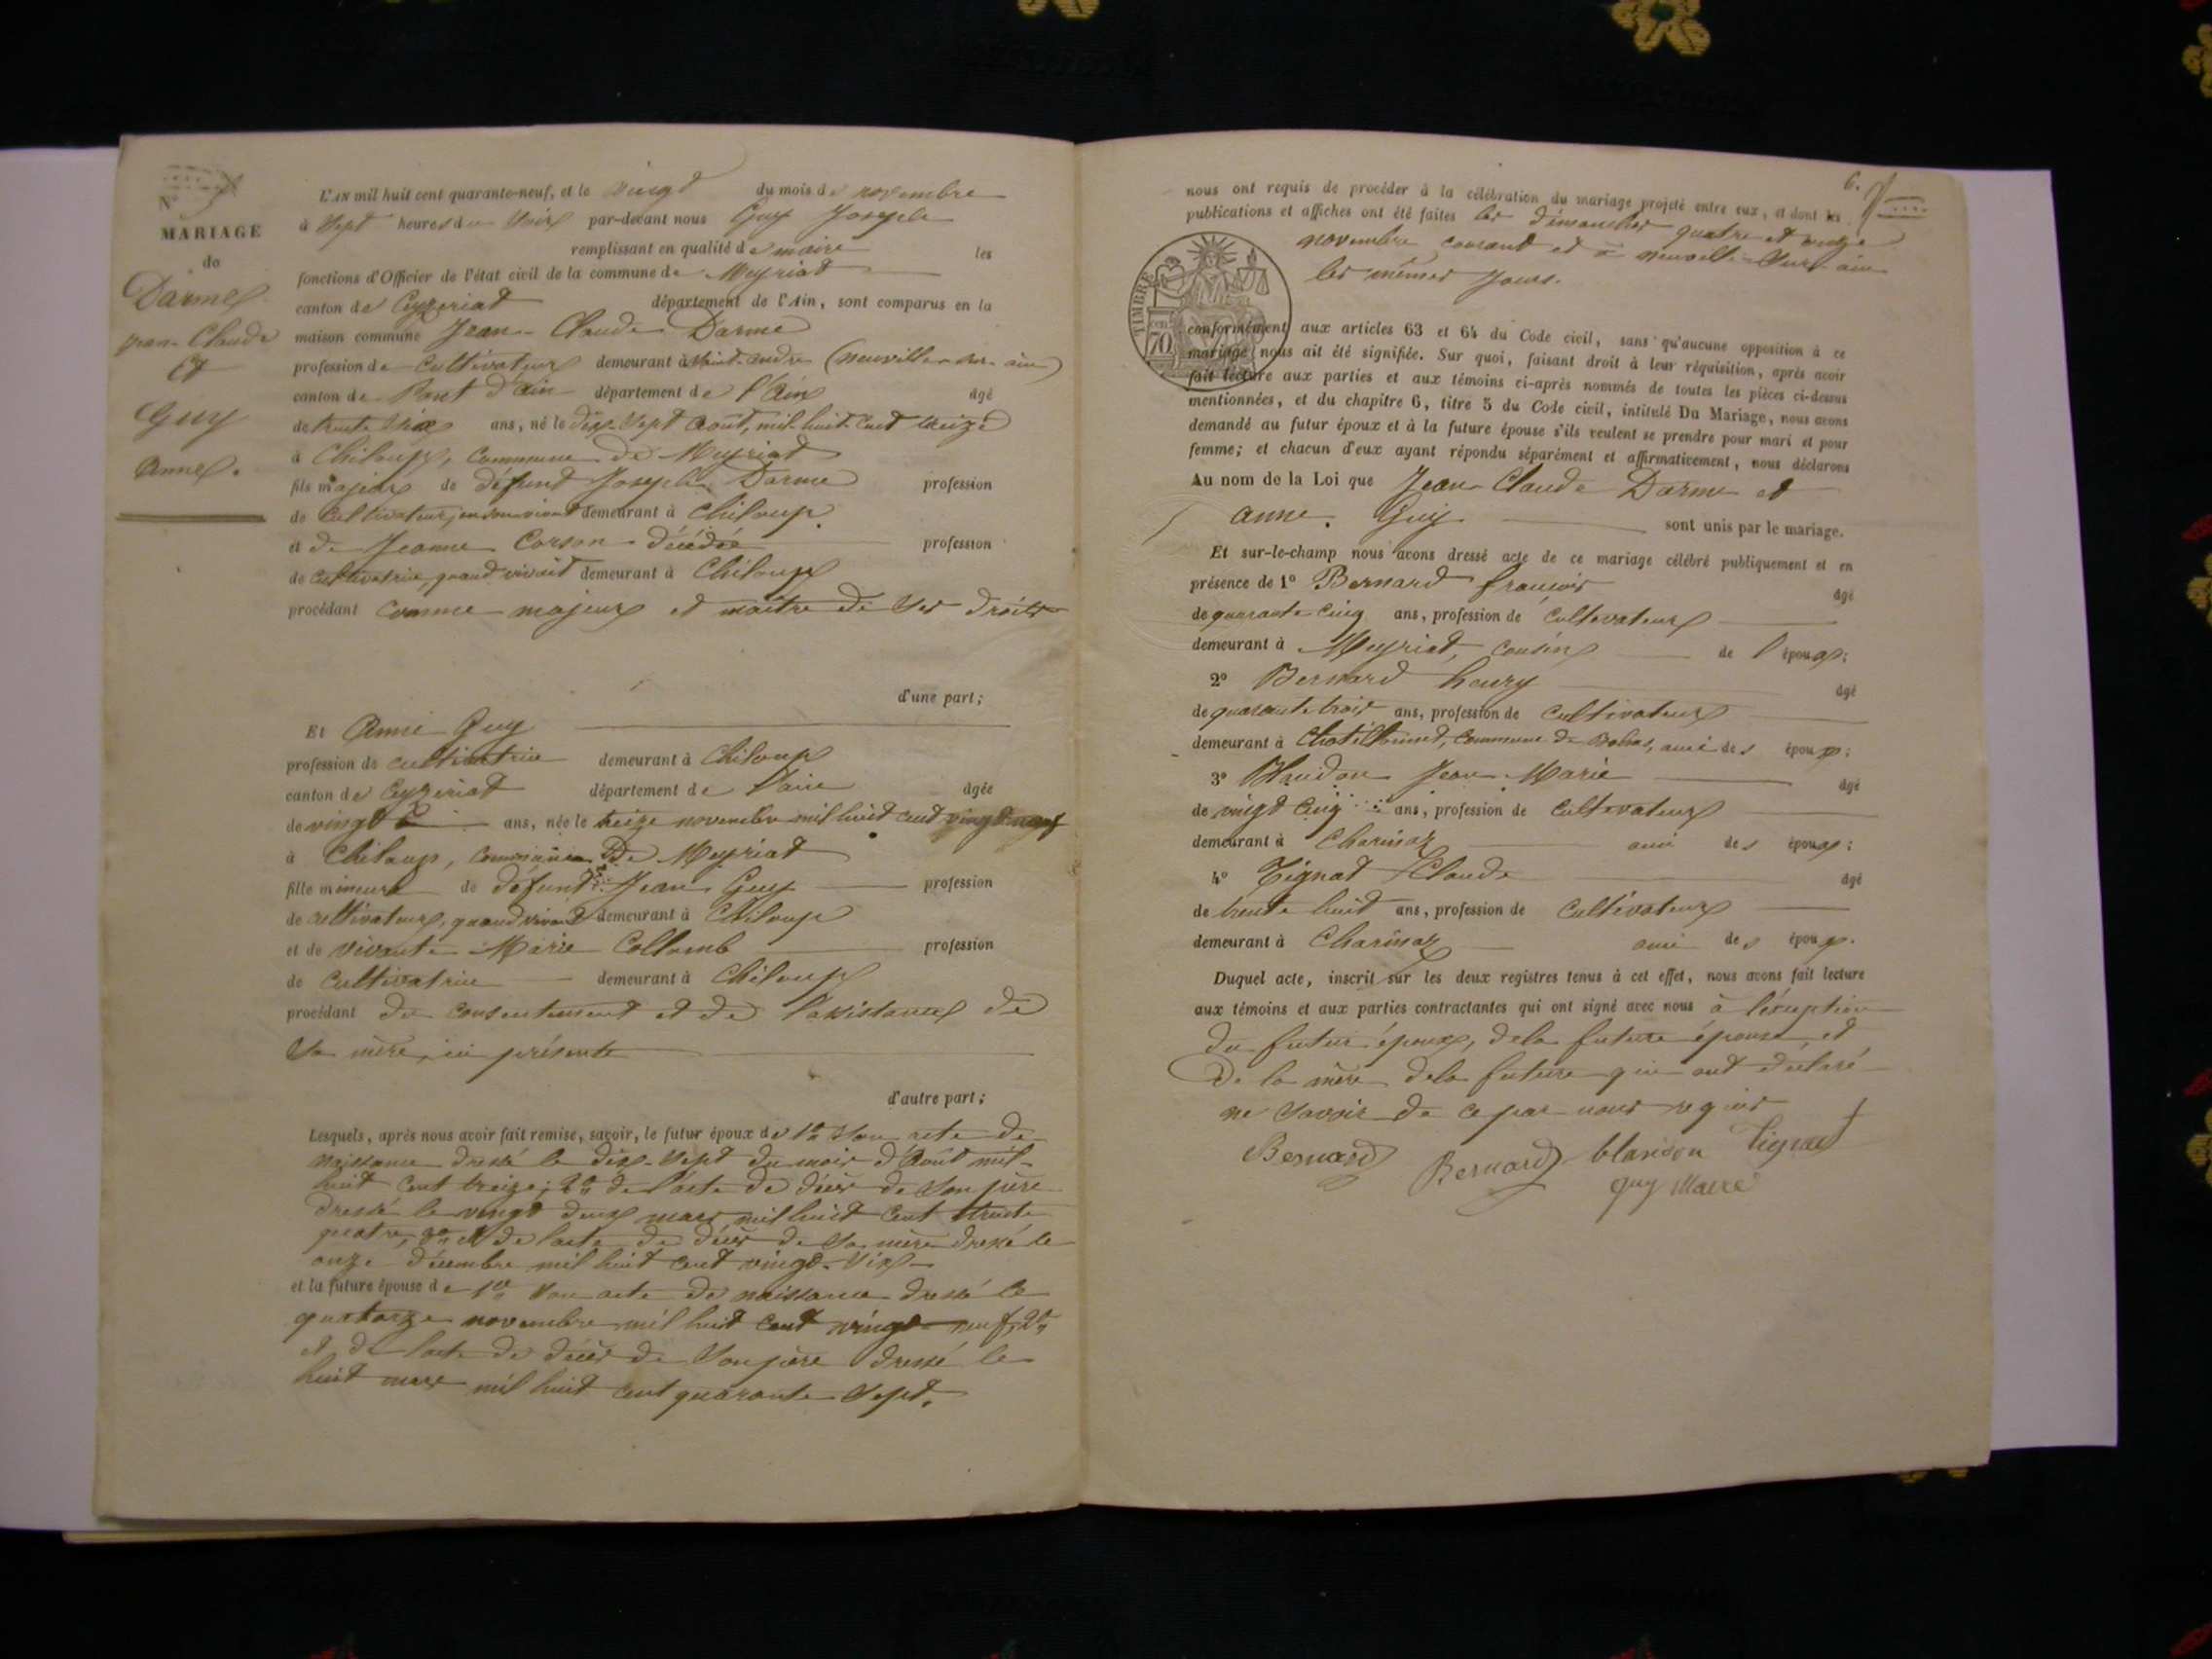 N°
MARIAGE
de
Darme
jean-Claude
Et
Guy
Anne.
L'AN mil huit cent quarante-neuf, et le vingt du mois de novembre
à Sept heures du Soir par-devant nous Guy Joseph
remplissant en qualité de maire les
fonctions d'Officier de l'état civil de la commune de Meyriat
canton de Ceyzeriat département de l'Ain, sont comparus en la
maison commune Jean-Claude Darme
profession de Cultivateur demeurant à Saint-andre (neuville-sur-ain)
canton de Pont d'ain département de l'Ain âgé
de trente Six ans, né le dix-Sept Août, mil-huit-Cent treize
à Chiloup, Commune de Meyriat
fils majeur de défunt Joseph Darme profession
de Cultivateur, en son vivant demeurant à Chiloup.
et de Jeanne Corson décédée profession
de Cultivatrice, quand vivait demeurant à Chiloup
procédant comme majeur et maître de Ses droits
d'une part;
Et Anne Guy
profession de cultivatrice demeurant à Chiloup
canton de Ceyzeriat département de l'ain âgée
de vingt ans, née le treize novembre mil huit cent vingt-neuf
à Chiloup, commune De Meyriat
fille mineure de défunt Jean Guy profession
de cultivateur, quand vivait demeurant à Chiloup
et de vivante Marie Collomb profession
de Cultivatrice demeurant à Chiloup
procédant du consentement et de l'assistance de
Sa mère, ici présente
d'autre part;
Lesquels, après nous avoir fait remise, savoir, le futur époux de 1° Son acte de
naissance dressé le dix-Sept du mois d'Août mil-
huit cent treize; 2° de l'acte de décès de Son père
dressé le vingt deux mars mil huit cent trente
quatre, 3° et de l'acte de décès de Sa mère dressé le
onze décembre mil huit cent vingt-Six
et la future épouse de 1° Son acte de naissance dressé le
quatorze novembre mil huit cent vingt-neuf, 2°
et de l'acte de décès de Son père dressé le
huit mars mil huit cent quarante Sept.
6.
nous ont requis de procéder à la célébration du mariage projeté entre eux, et dont les
publications et affiches ont été faites les dimanches quatre et onze
novembre courant et à neuville-Sur-ain
les mêmes jours.
TIMBRE
70
conformément aux articles 63 et 64 du Code civil, sans qu'aucune opposition à ce
mariage nous ait été signifiée. Sur quoi, faisant droit à leur réquisition, après avoir
fait lecture aux parties et aux témoins ci-après nommés de toutes les pièces ci-dessus
mentionnées, et du chapitre 6, titre 5 du Code civil, intitulé Du Mariage, nous avons
demandé au futur époux et à la future épouse s'ils veulent se prendre pour mari et pour
femme; et chacun d'eux ayant répondu séparément et affirmativement, nous déclarons
Au nom de la Loi que Jean Claude Darme et
anne. Guy sont unis par le mariage.
Et sur-le-champ nous avons dressé acte de ce mariage célébré publiquement et en
présence de 1° Bernard françois âgé
de quarante Cinq ans, profession de Cultivateur
demeurant à Meyriat, cousin de l'époux;
2° Bernard henry âgé
de quarante trois ans, profession de Cultivateur
demeurant à Commune de Bohas, ami des époux;
3° Jean-Marie âgé
de vingt Cinq ans, profession de Cultivateur
demeurant à Charinaz ami des époux;
4° Tignat Claude âgé
de trente huit ans, profession de Cultivateur
demeurant à Charinaz ami des époux.
Duquel acte, inscrit sur les deux registres tenus à cet effet, nous avons fait lecture
aux témoins et aux parties contractantes qui ont signé avec nous à l'exception
du futur époux, de la future épouse et
De la mère de la future qui ont déclaré
ne Savoir de ce par nous requis
Bernard Bernard blandon Tignat
guy Maire